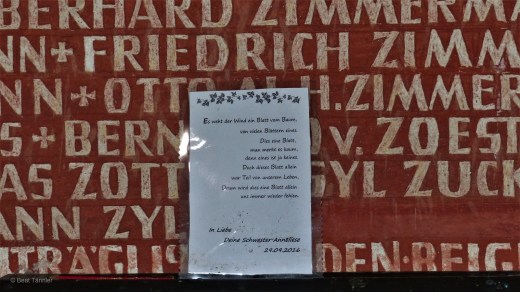 BERHARD ZIMMERMA
NN + FRIEDRICH ZIMM
ANN + OTTO H. ZIMMER
S + BERN D v. ZOEST
AS ZOTT SYL ZUCK
ANN ZYL
TRÄGLI DEN REI
Es weht der Wind ein Blatt vom Baum,
von vielen Blättern eines
Dies eine Blatt,
man merkt es kaum,
denn eines ist ja keines
Doch dieses Blatt allein
war Teil von unserem Leben,
Drum wird dies eine Blatt allein
uns immer wieder fehlen.
In Liebe
Deine Schwester
29.09.2016
© Beat Tanner